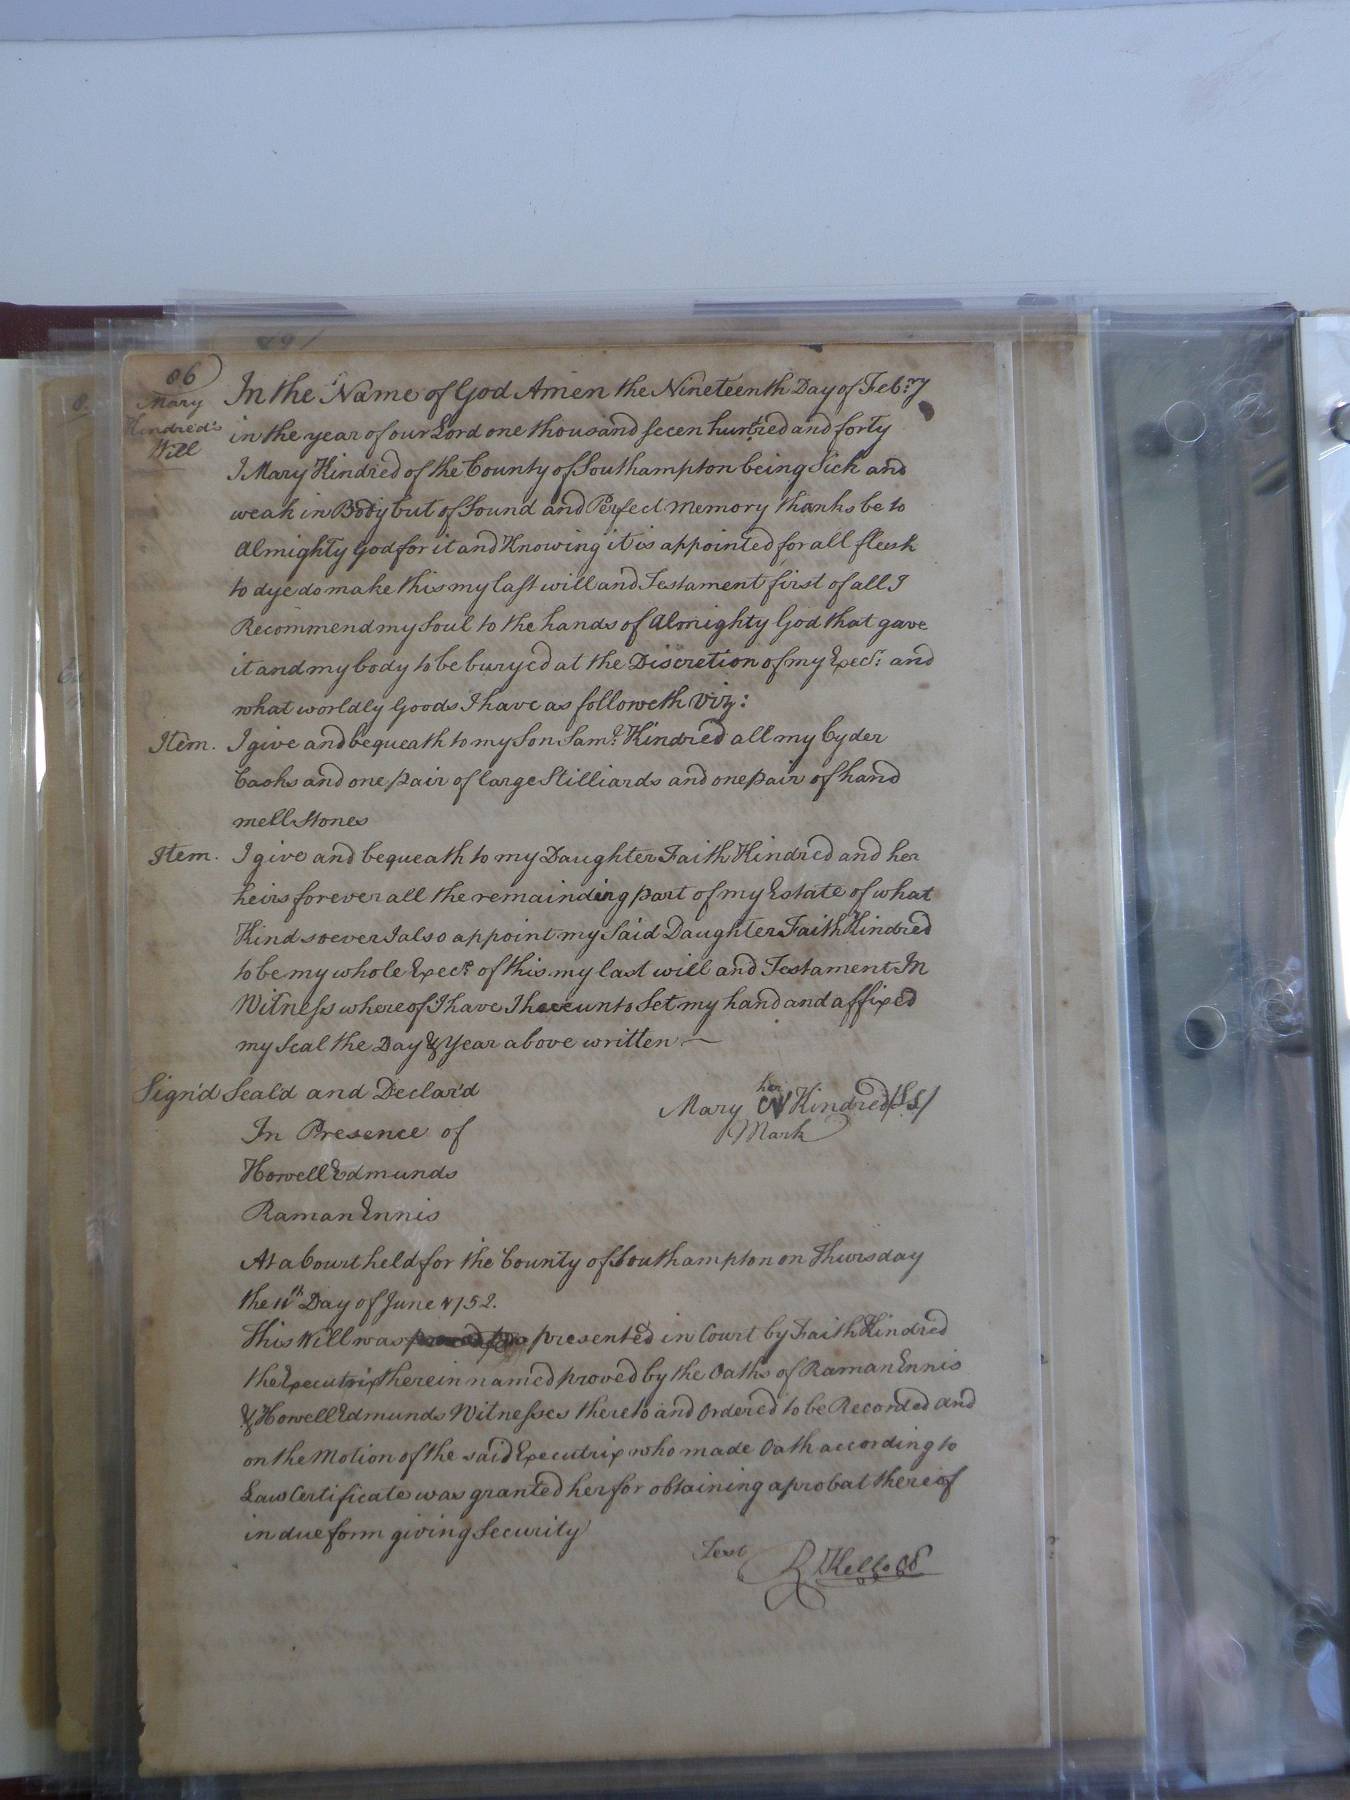 86
Mary
Kindred's
Will
In the Name of God Amen the Nineteenth Day of Feb:ry
in the year of our Lord one thousand seven hundred and forty
I Mary Kindred of the County of Southampton being Sick and
weak in Body but of Sound and Perfect Memory thanks be to
Almighty God for it and Knowing it is appointed for all flesh
to dye do make this my last will and Testament first of all I
Recommend my Soul to the hands of Almighty God that gave
it and my body to be buryed at the Discretion of my Exec:r and
what worldly Goods I have as followeth Viz:
Item. I give and bequeath to my Son Sam:l Kindred all my Cyder
Casks and one pair of large Stilliards and one pair of hand
mell Stones
Item. I give and bequeath to my Daughter Faith Kindred and her
heirs forever all the remainding part of my Estate of what
Kind soever I also appoint my Said Daughter Faith Kindred
to be my whole Exec:r of this my last will and Testament In
Witness whereof I have Thereunto Set my hand and affixed
my Seal the Day & Year above written —
Sign'd Seal'd and Declar'd
her
Mary Kindred (LS)
Mark
In Presence of
Howell Edmunds
Raman Ennis
At a Court held for the County of Southampton on Thursday
the 11th Day of June 1752.
This Will was presented in Court by Faith Kindred
the Executrix therein named proved by the Oaths of Raman Ennis
& Howell Edmunds Witnesses thereto and Ordered to be Recorded and
on the Motion of the said Executrix who made Oath according to
Law Certificate was granted her for obtaining a probat thereof
in due form giving Security
Test